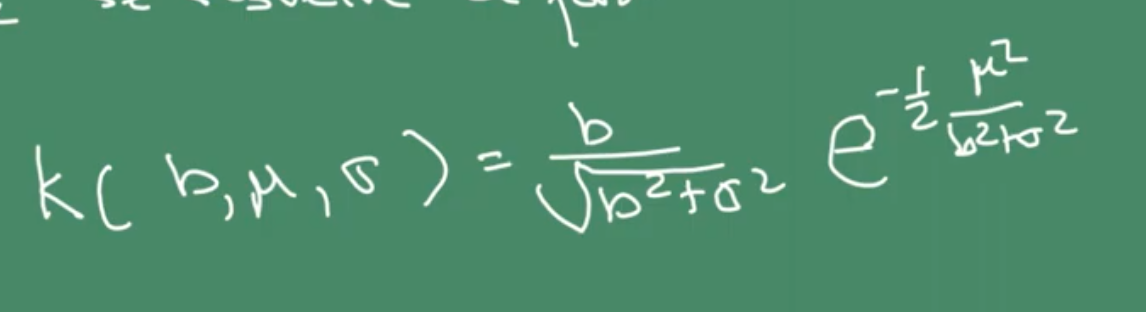 k( b, μ, σ ) = b / √(b²+σ²) e^(-1/2 μ²/(b²+σ²))